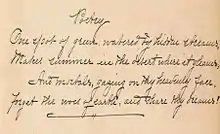 Poetry
One spot of green, watered by hidden streams,
Makes summer in the desert where it gleams,
And mortals, gazing on thy heavenly face,
Forget the woes of earth, and share thy dreams!